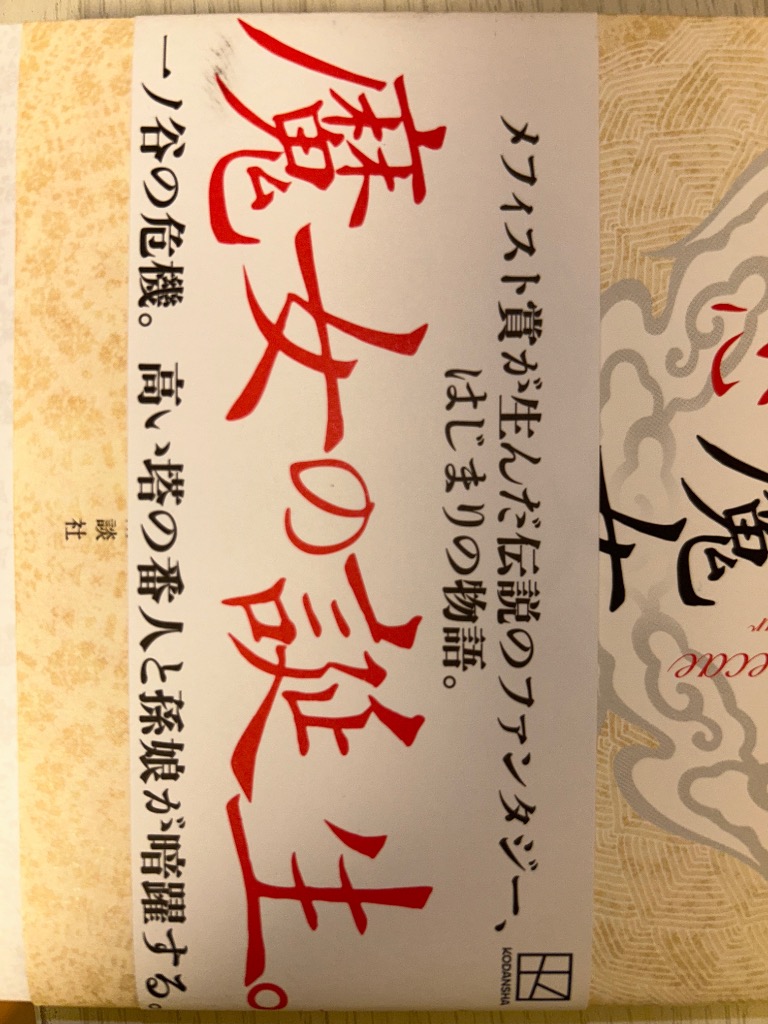 メフィスト賞が生んだ伝説のファンタジー、
はじまりの物語。
魔女の誕生。
一ノ谷の危機。高い塔の番人と孫娘が暗躍する。
KODANSHA
魔女
ecae
談社